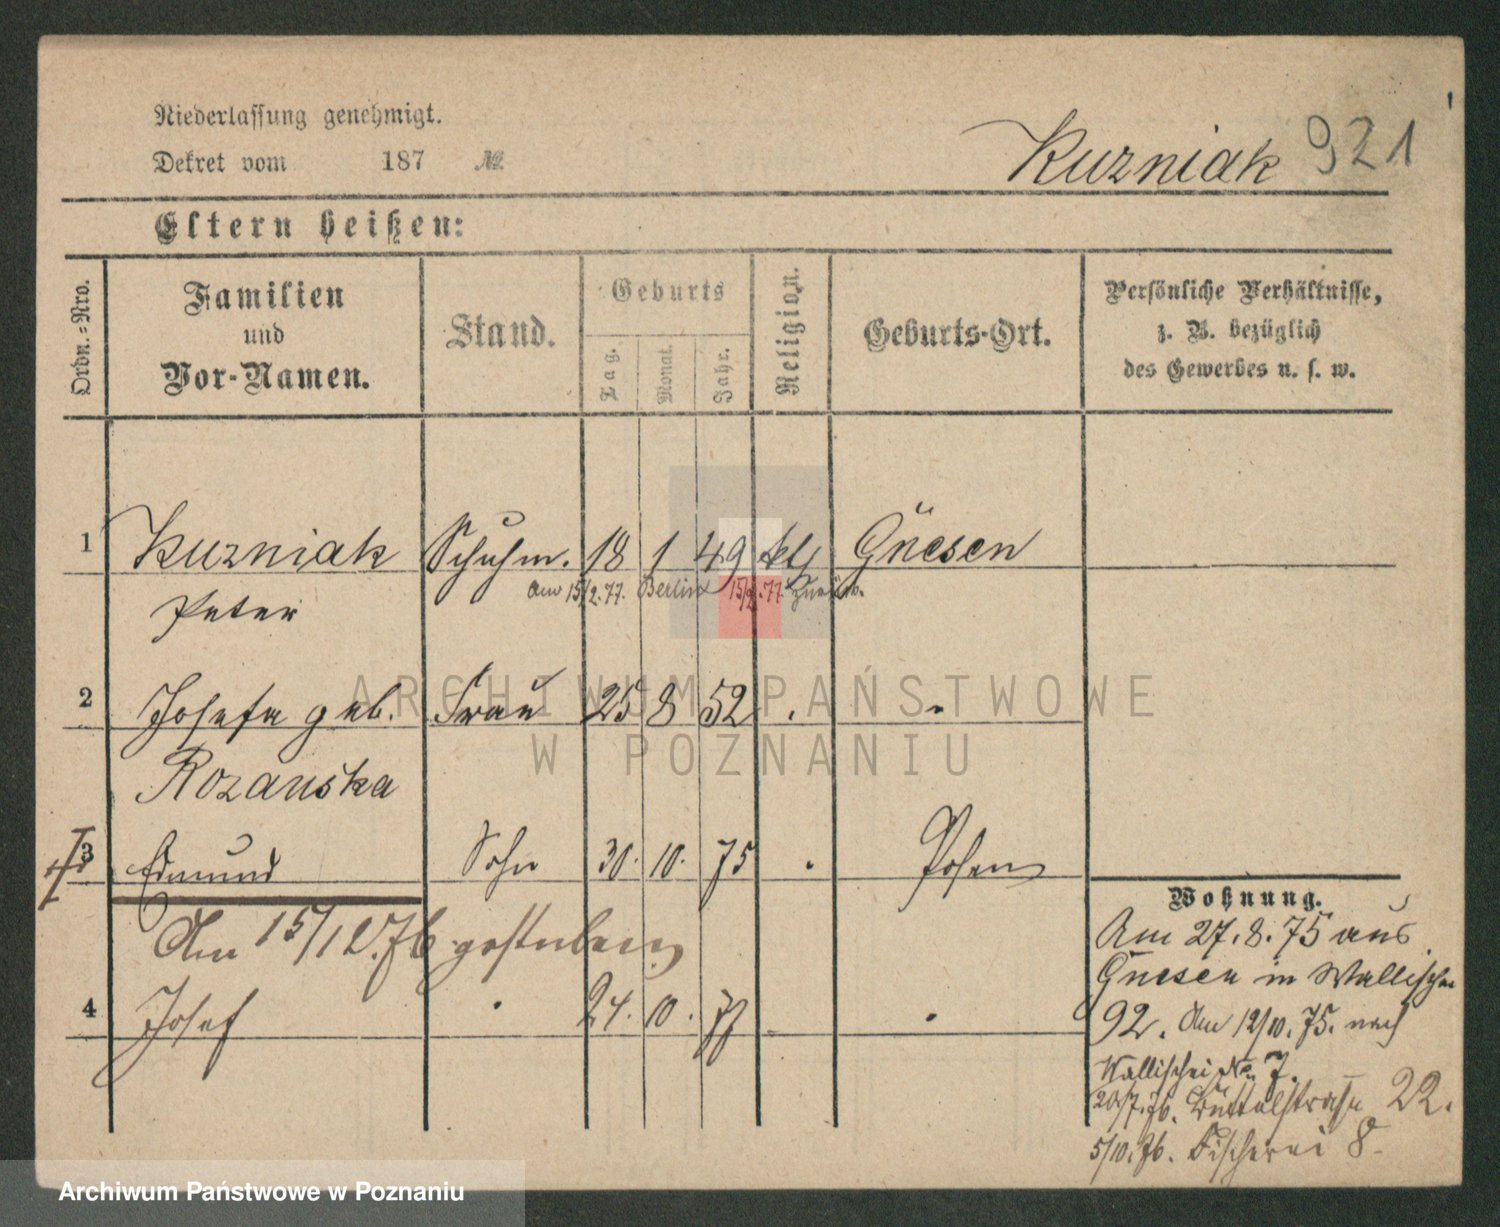 Niederlassung genehmigt.
Dekret vom 187 №
Kuzniak 921
Eltern heißen:
Ordn.-Nro.
Familien
und
Vor-Namen.
Stand.
Geburts
Tag.
Monat.
Jahr.
Religion.
Geburts-Ort.
Persönliche Verhältnisse,
z. B. bezüglich
des Gewerbes u. s. w.
1 Kuzniak Schuhm. 18 1 49 kth Gnesen
Am 15/2.77. Berlin 15/2.77. zurück.
Peter
2 Josefa geb. Frau 25 8 52 . "
Rozanska
3 Edmund Sohn 30. 10. 75 . Posen
Am 15/12.76 gestorben
4 Josef " 24. 10. 77 "
Wohnung.
Am 27.8.75 aus
Gnesen in Wallischei
92. Am 12/10.75. nach
Wallischei No 7.
20/7.76. Büttelstraße 22.
5/10.76. Fischerei 8.
ARCHIWUM PAŃSTWOWE
W POZNANIU
Archiwum Państwowe w Poznaniu